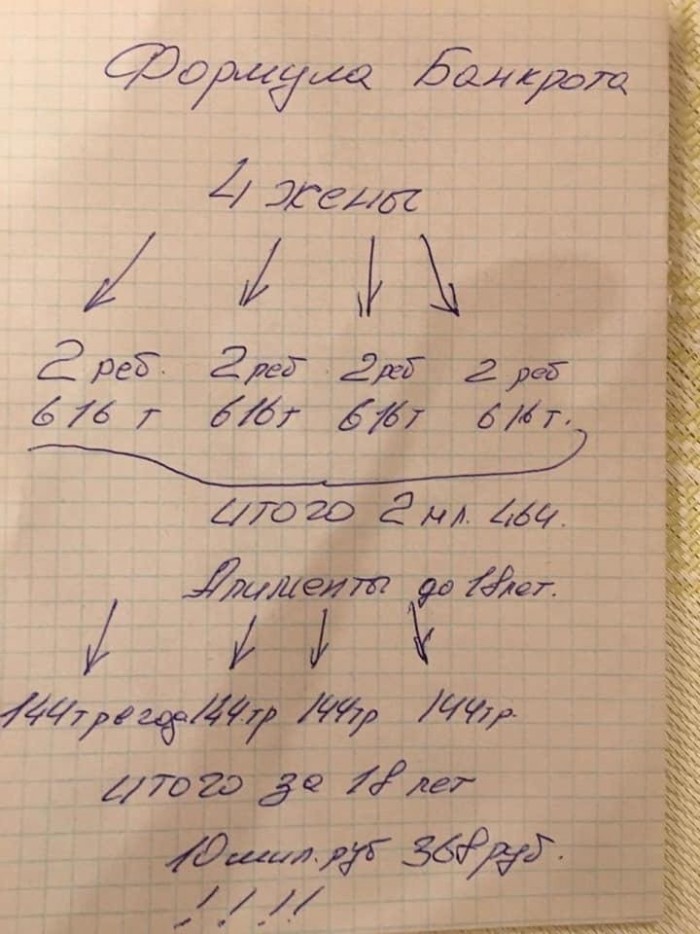 Формула Банкрота
4 жены
2 реб. 2 реб 2 реб 2 реб
616 т 616 т 616 т 616 т.
итого 2 мл. 464.
Алименты до 18 лет.
144 тр в года 144 тр 144 тр 144 тр.
итого за 18 лет
10 мил. руб 368 руб.
!!!!